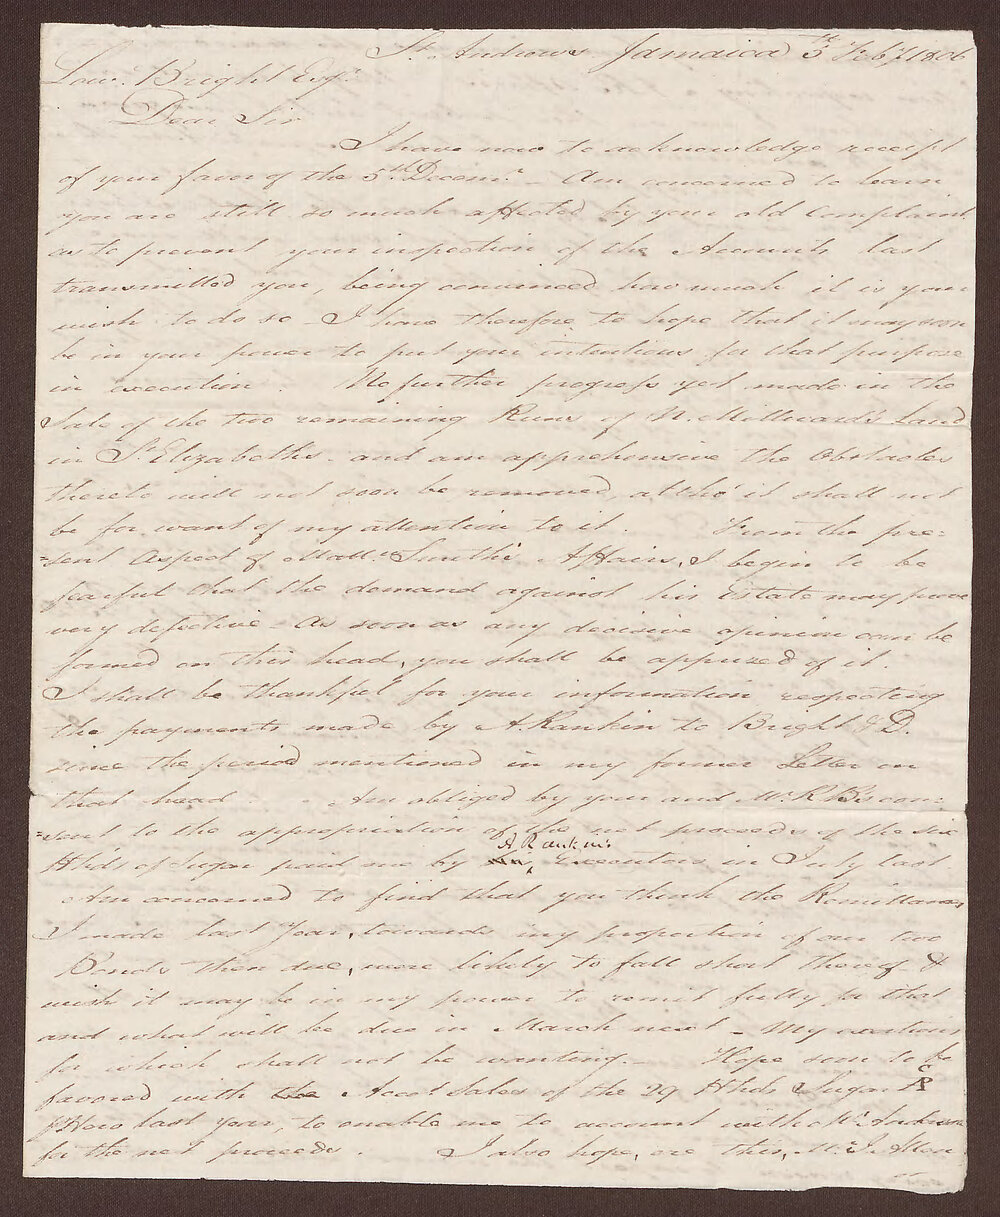 St. Andrews Jamaica 5th Feby. 1806
Low. Bright Esqr.
Dear Sir
I have now to acknowledge receipt
of your favor of the 5th Decemr. - Am concerned to learn
you are still so much affected by your old Complaint
as to prevent your inspection of the Accounts last
transmitted you, being convinced how much it is your
wish to do so - I have therefore to hope that it may soon
be in your power to put your intentions for that purpose
in execution. No further progress yet made in the
Sale of the two remaining Runs of N. Millward's Land
in St. Elizabeths - and am apprehensive the Obstacles
thereto will not soon be removed, altho' it shall not
be for want of my attention to it. From the pre=
=sent Aspect of Smith's Affairs, I begin to be
fearful that the demand against his Estate may prove
very defective - As soon as any decisive opinion can be
formed on this head, you shall be apprized of it.
I shall be thankful for your information respecting
the payments made by A. Rankin to Bright & D.
since the period mentioned in my former Letter on
that head. Am obliged by your and Mr. R. B's con=
=sent to the appropriation of the net proceeds of the six
Hhds of Sugar paid me by A Rankin's Executors in July last.
Am concerned to find that you think the Remittances
I made last Year, towards my proportion of our two
Bonds then due, were likely to fall short thereof - &
wish it may be in my power to remit fully for that
and what will be due in March next - My exertions
for which shall not be wanting. - Hope soon to be
favored with the Acct. Sales of the 29 Hhds Sugar
last Year, to enable me to account with Mr.
for the net proceeds. I also hope, ere this, Mr. J. Allen